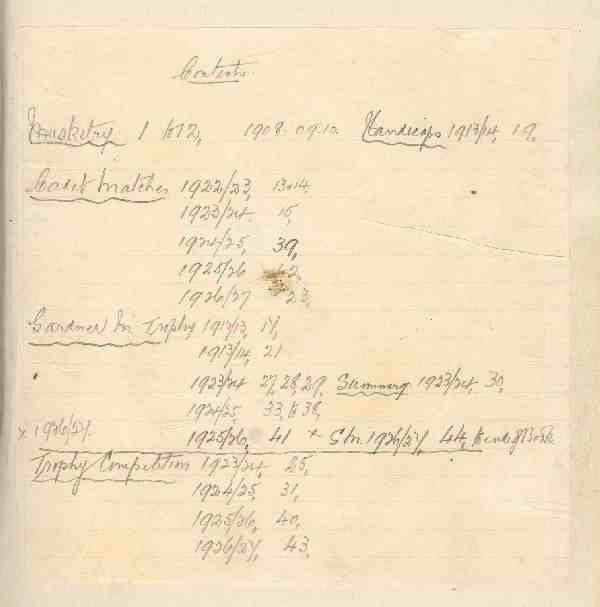 Contents.
Musketry 1 to 12, 1908. 09.10. Handicaps 1913/14, 19,
Matches 1922/23, 13&14.
1923/24. 15,
1924/25, 39,
1925/26
1926/27 23,
Gardner Trophy 1912/13, 17,
1913/14, 21
1923/24 27, 28, 29, Summary 1923/24, 30,
1924/25 33, to 38,
x 1926/27. 1925/26, 41 + 1926/27, 44, to end of Book
Trophy Competition 1923/24, 25,
1924/25, 31,
1925/26, 40,
1926/27, 43,